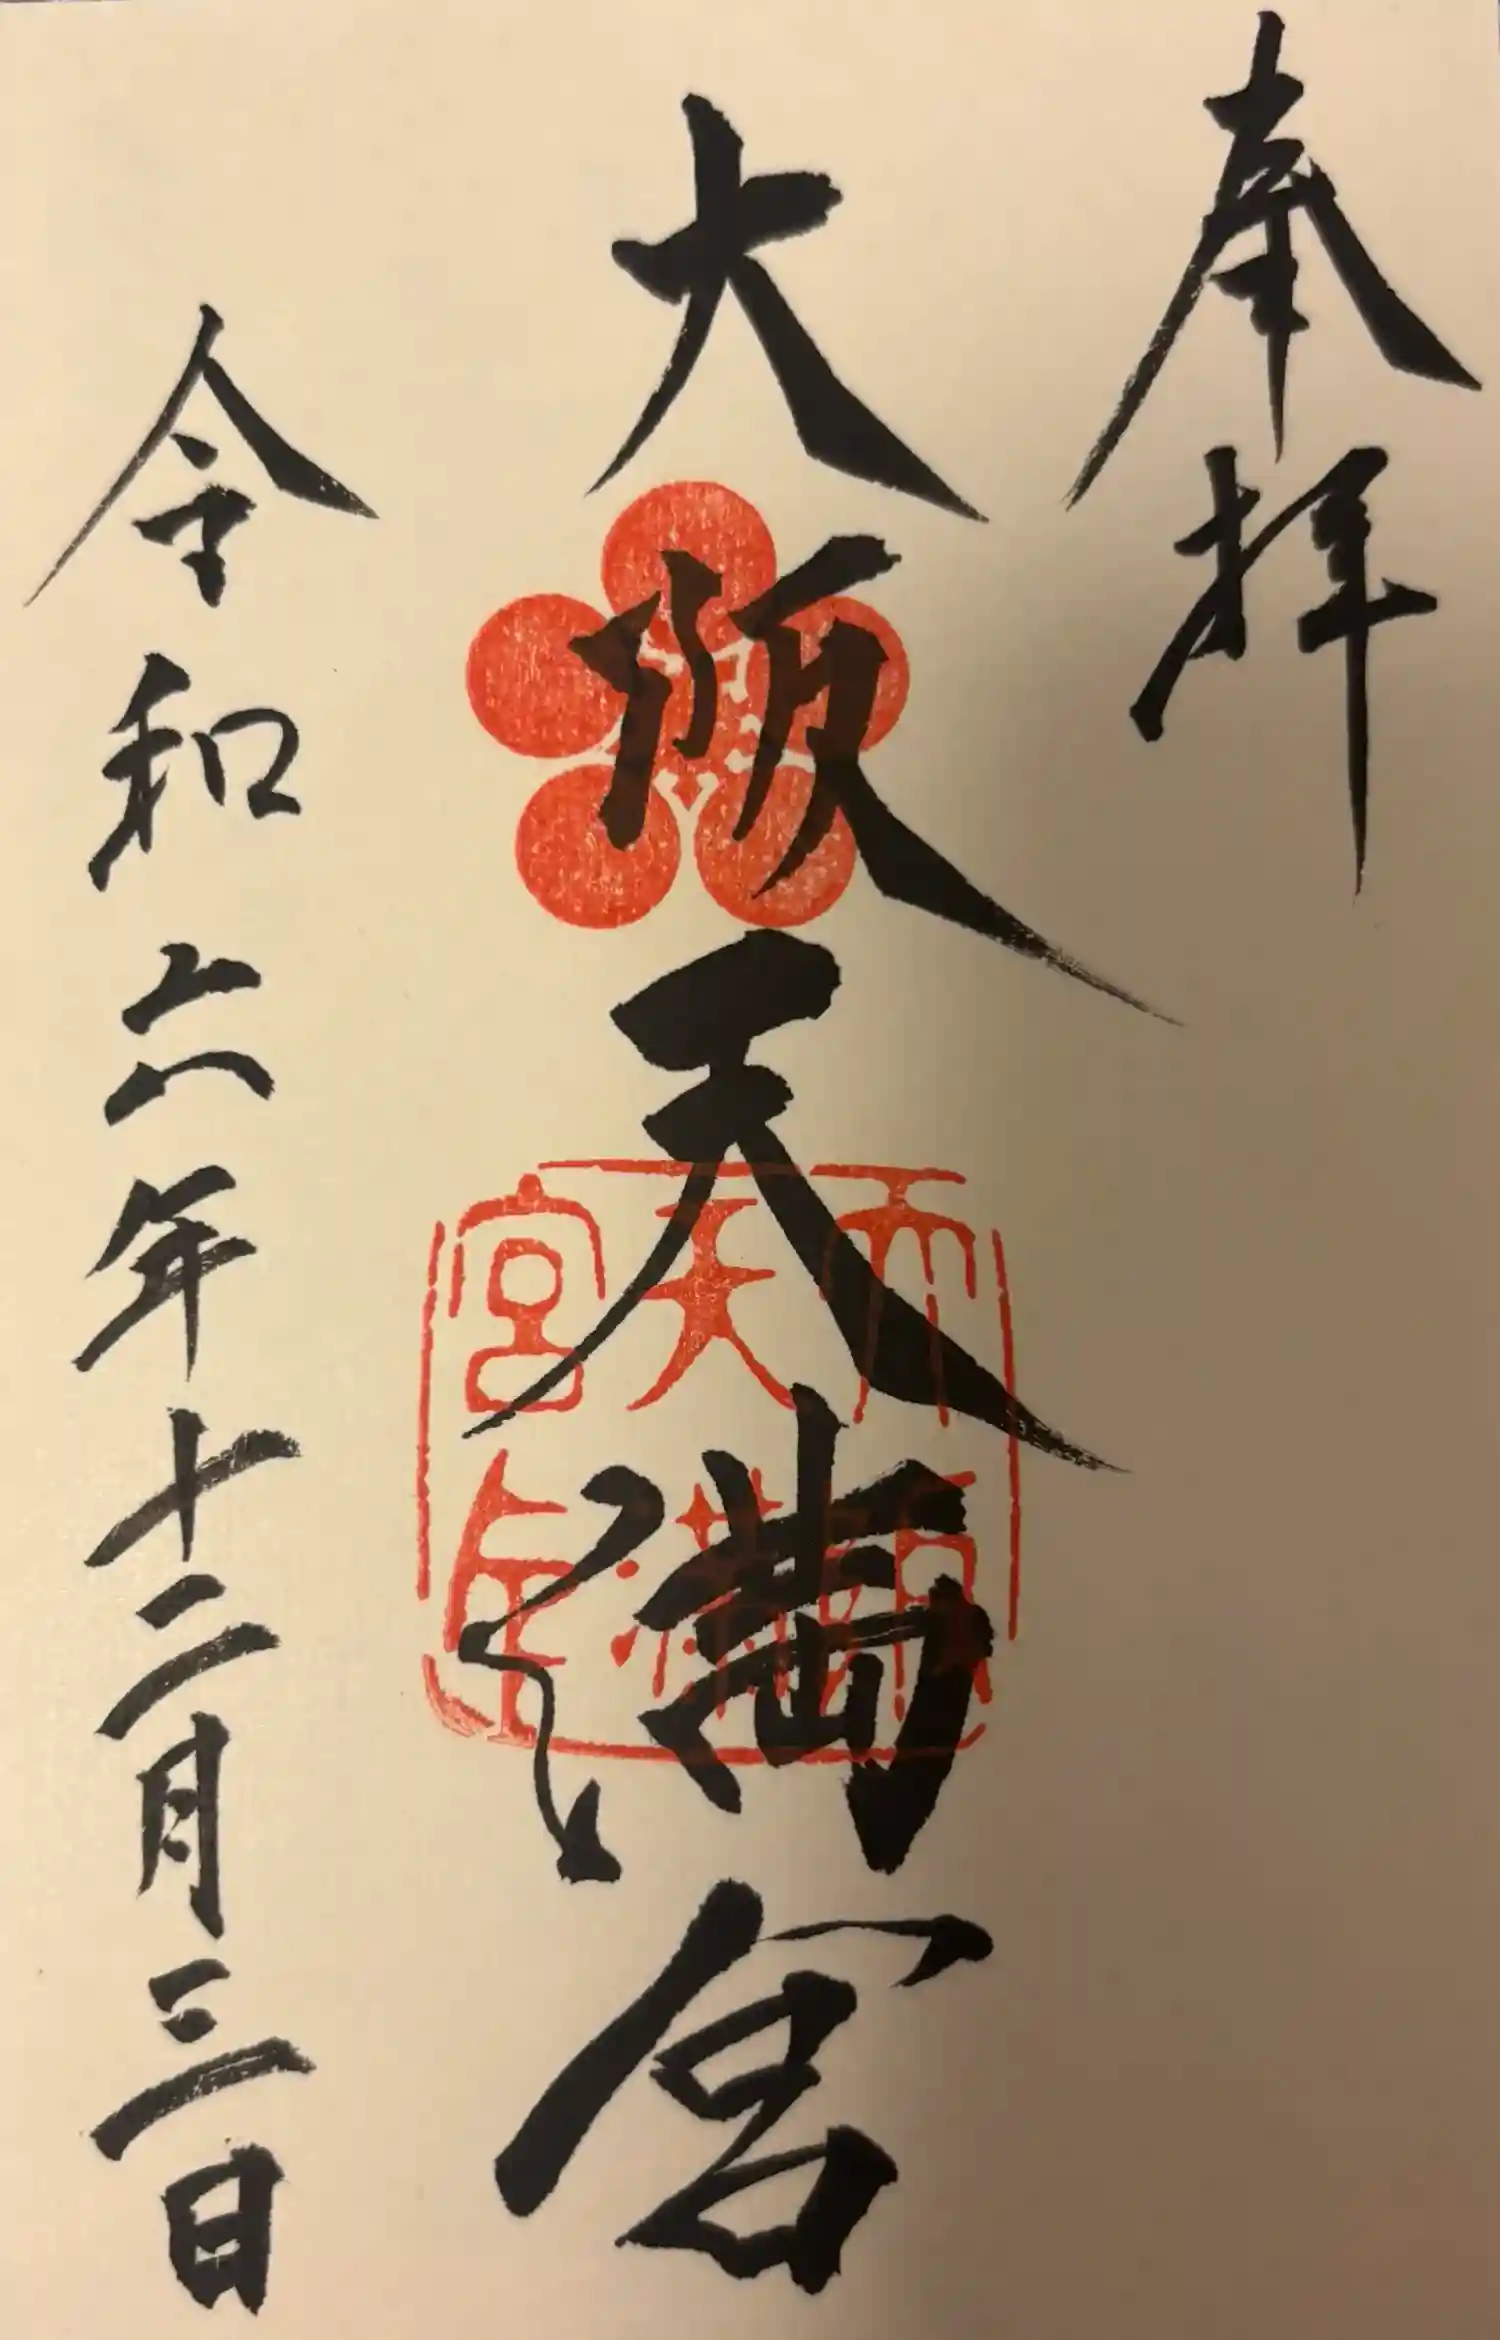 奉拝
大阪天満宮
令和六年十二月三日
大阪
天満
宮印